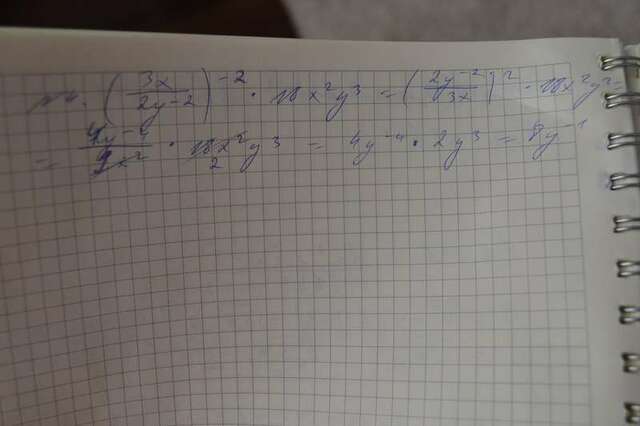 №4. (3x / 2y-2)^-2 · 18x²y³ = (2y^-2 / 3x)² · 18x²y²
= 4y^-4 / 9x² · 18x²y³ / 2 = 4y^-4 · 2y³ = 8y^-1